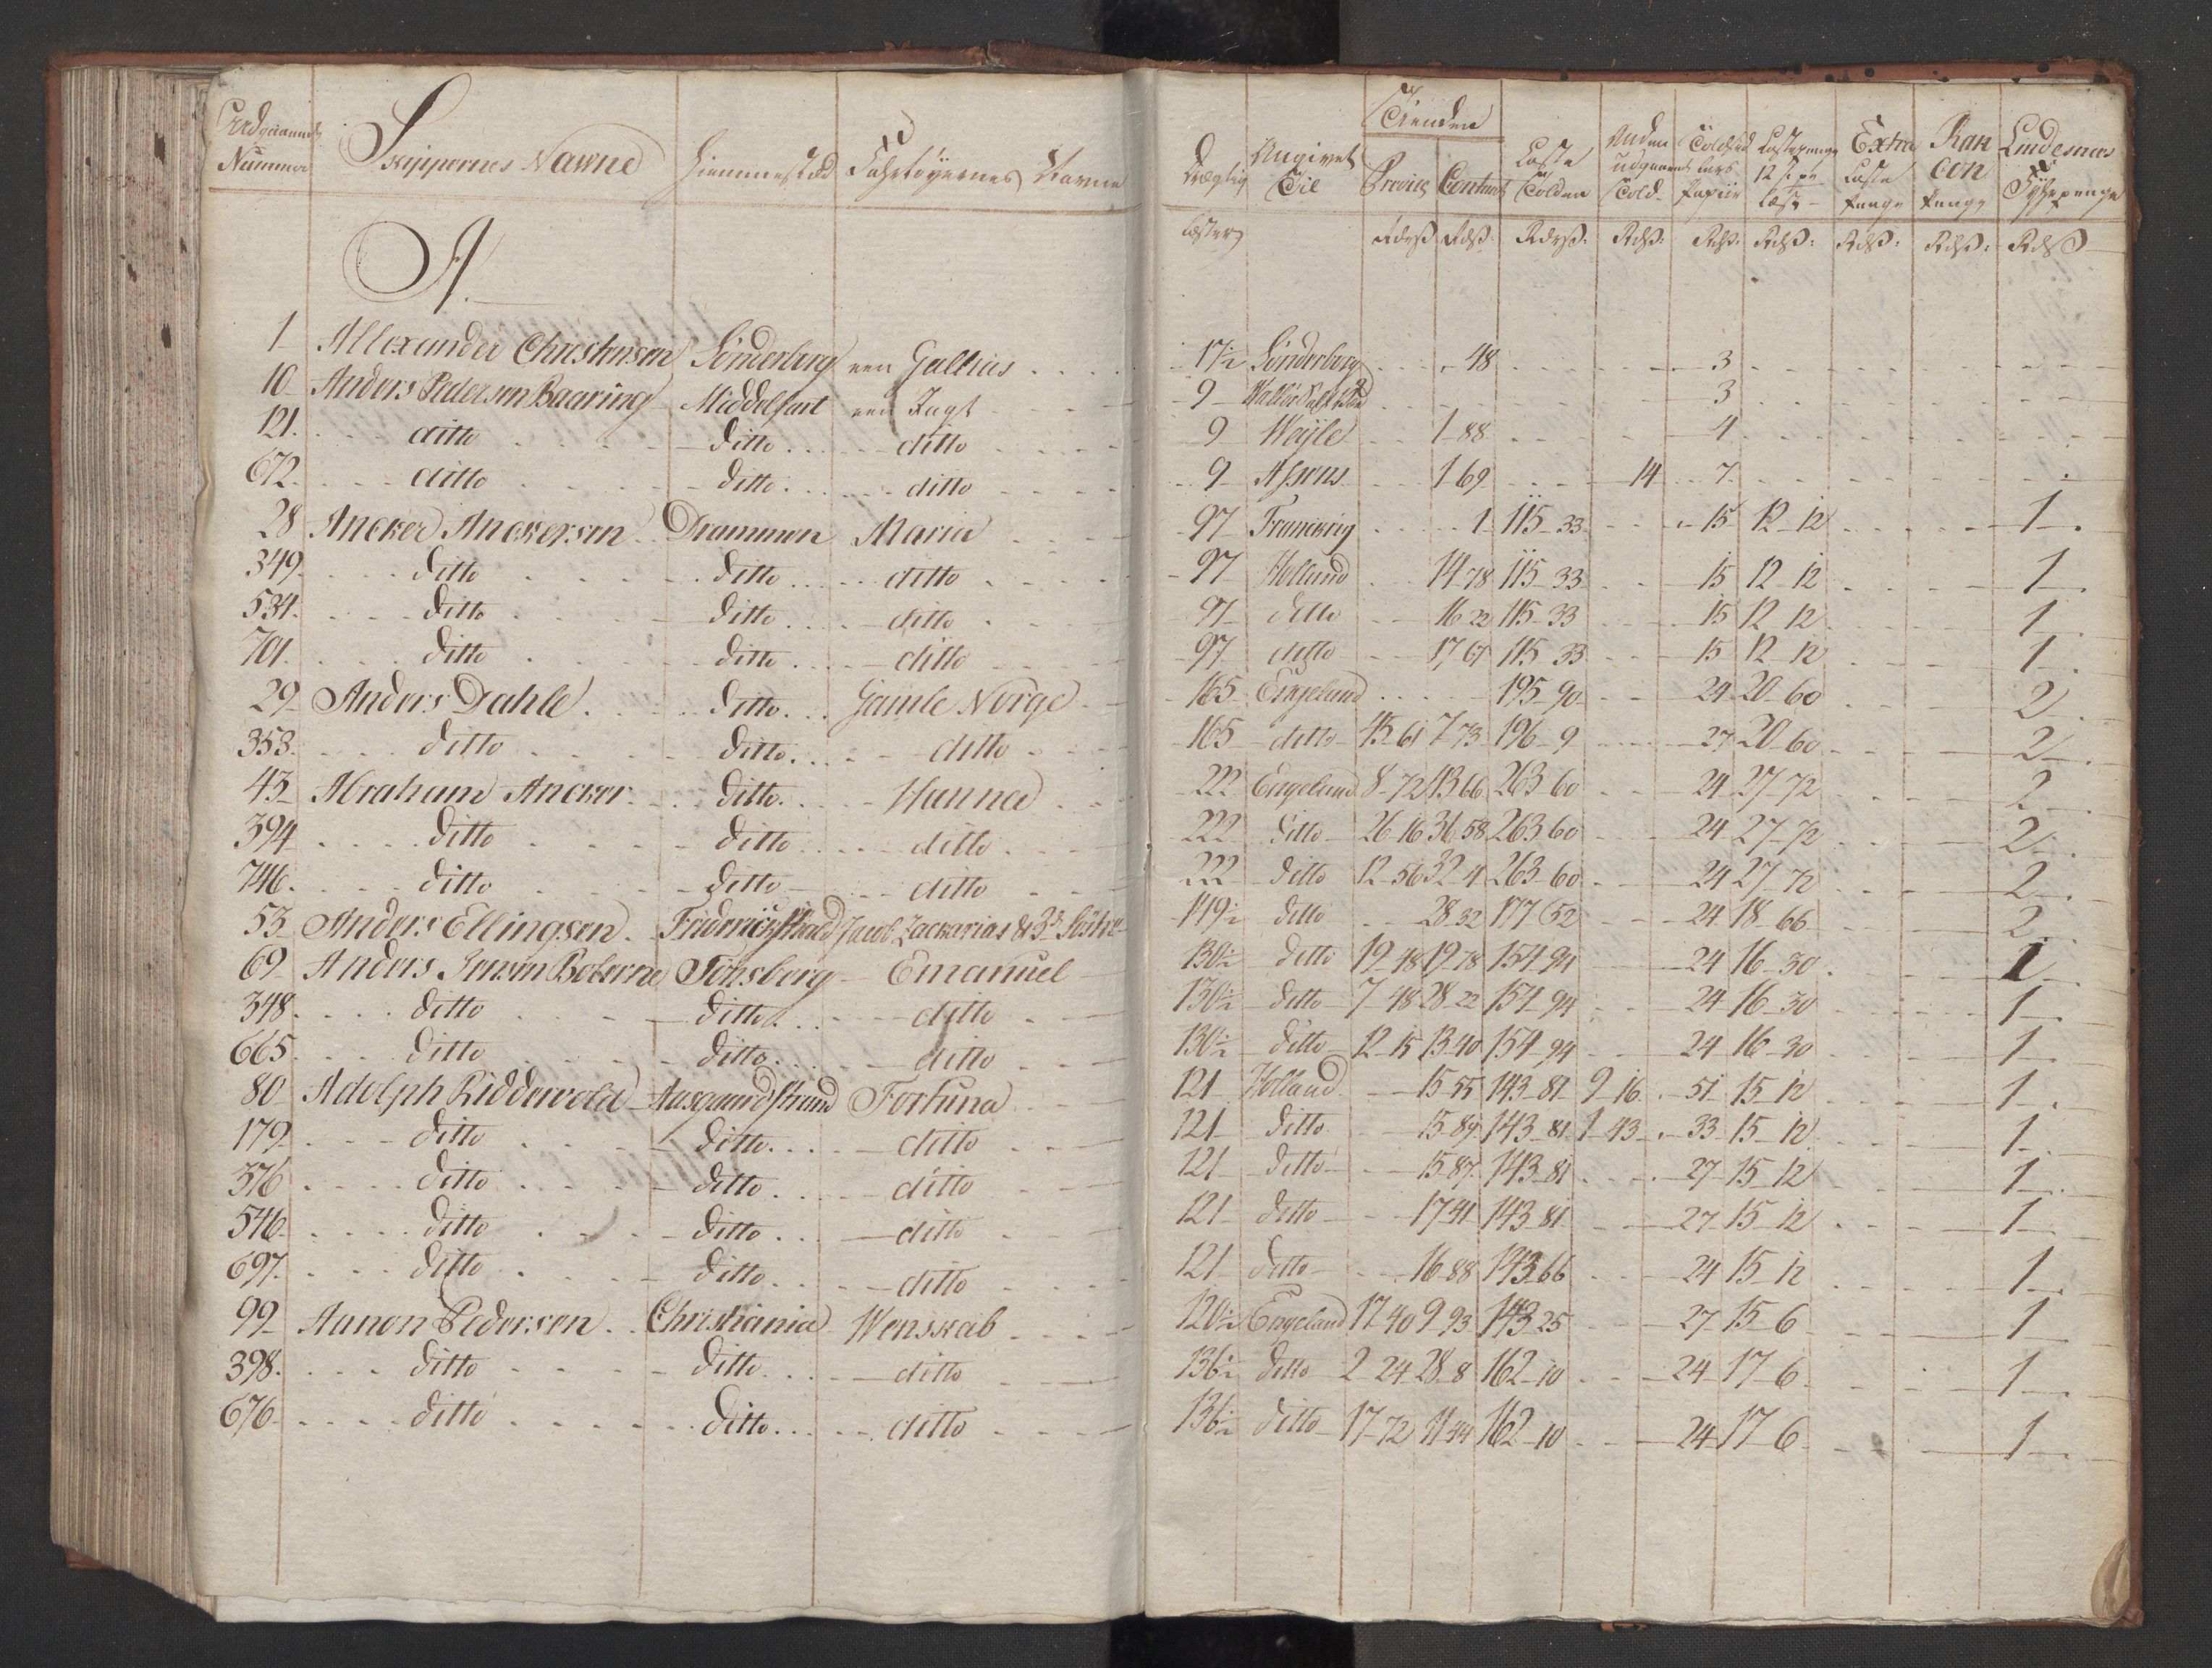 Udgaaende Nummer | Skippernes Navne | Hiemmestæd | Fahrtøyernes Navne | Drægtig Læster | Angivet Til | Tienden Provict Contant | Laste Tolden | Anden udgaaende Told | Toldsædlens Papiir | Lastepenge 12 s pr Læst | Extra Laste Penge | Rancon Penge | Lindesnæs Fyhrpenge
A.
1 Allexander Christensen Sönderborg een Galleas 17½ Sönderborg 48 3
10 Anders Pedersen Baaring Middelfart een Jagt 9 3
121. ditto ditto ditto 9 Weÿle 1 88 4
672. ditto ditto ditto 9 Assens 1 69 14 7
28 Ancker Anckersen Drammen Maria 97 1 115 33 15 12 12 1
349. ditto ditto ditto 97 Holland 14 78 115 33 15 12 12 1
534. ditto ditto ditto 97 ditto 16 22 115 33 15 12 12 1
701. ditto ditto ditto 97 ditto 17 67 115 33 15 12 12 1
29 Anders Dahle ditto Gamle Norge 165 Engeland 195 90 24 20 60 2
353. ditto ditto ditto 165 ditto 45 61 7 73 196 9 27 20 60 2
43 Abraham Ancker ditto Hanna 222 Engeland 8 72 43 66 263 60 24 27 72 2
394 ditto ditto ditto 222 ditto 26 16 36 58 263 60 24 27 72 2
746. ditto ditto ditto 222 ditto 12 56 32 4 263 60 24 27 72 2
53 Anders Ellingsen Friderichshald Jacob Zackarias & 3de 149½ ditto 28 32 177 52 24 18 66 2
69 Anders Jensen Bolærne Tönsberg Emanuel 130½ ditto 19 48 19 78 154 94 24 16 30 1
348. ditto ditto ditto 130½ ditto 7 48 28 22 154 94 24 16 30 1
665. ditto ditto ditto 130½ ditto 12 15 13 40 154 94 24 16 30 1
80 Adolph Riddervold Aasgaardstrand Fortuna 121 Holland 15 55 143 81 9 16 51 15 12 1
179 ditto ditto ditto 121 ditto 15 89 143 81 1 43 33 15 12 1
376 ditto ditto ditto 121 ditto 15 87 143 81 27 15 12 1
546. ditto ditto ditto 121 ditto 17 41 143 81 27 15 12 1
697. ditto ditto ditto 121 ditto 16 88 143 66 24 15 12 1
99 Aanon Pedersen Christiania Wenskab 120½ Engeland 17 40 9 93 143 25 27 15 6 1
398. ditto ditto ditto 136½ ditto 2 24 28 8 162 10 24 17 6 1
676 ditto ditto ditto 136½ ditto 17 72 11 44 162 10 24 17 6 1